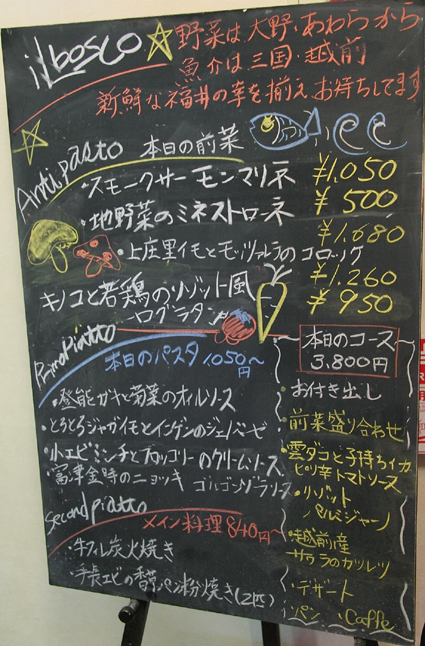 il bosco
野菜は大野・あわらから
魚介は三国・越前
新鮮な福井の幸を揃え、お待ちしてます
Antipasto 本日の前菜
・スモークサーモンマリネ ¥1.050
・地野菜のミネストローネ ¥500
・上庄里イモとモッツァレラのコロッケ ¥1.680
キノコと若鶏のリゾット風 ¥1.260
グラタン ¥950
Primo Piatto
本日のパスタ 1.050円～
・能登ガキと菊菜のオイルソース
・とろとろジャガイモとインゲンのジェノベーゼ
・小エビミンチとブロッコリーのクリームソース
・富津金時のニョッキ ゴルゴンゾーラソース
Second piatto
メイン料理 840円～
・牛フィレ炭火焼き
・手長エビの香草パン粉焼き(2匹)
本日のコース
3.800円
・お付き出し
・前菜盛り合わせ
・雲ダコと子持ちイカ
ピリ辛トマトソース
・リゾット
パルミジャーノ
・越前産
サワラのカツレツ
・デザート
・パン ・Caffe